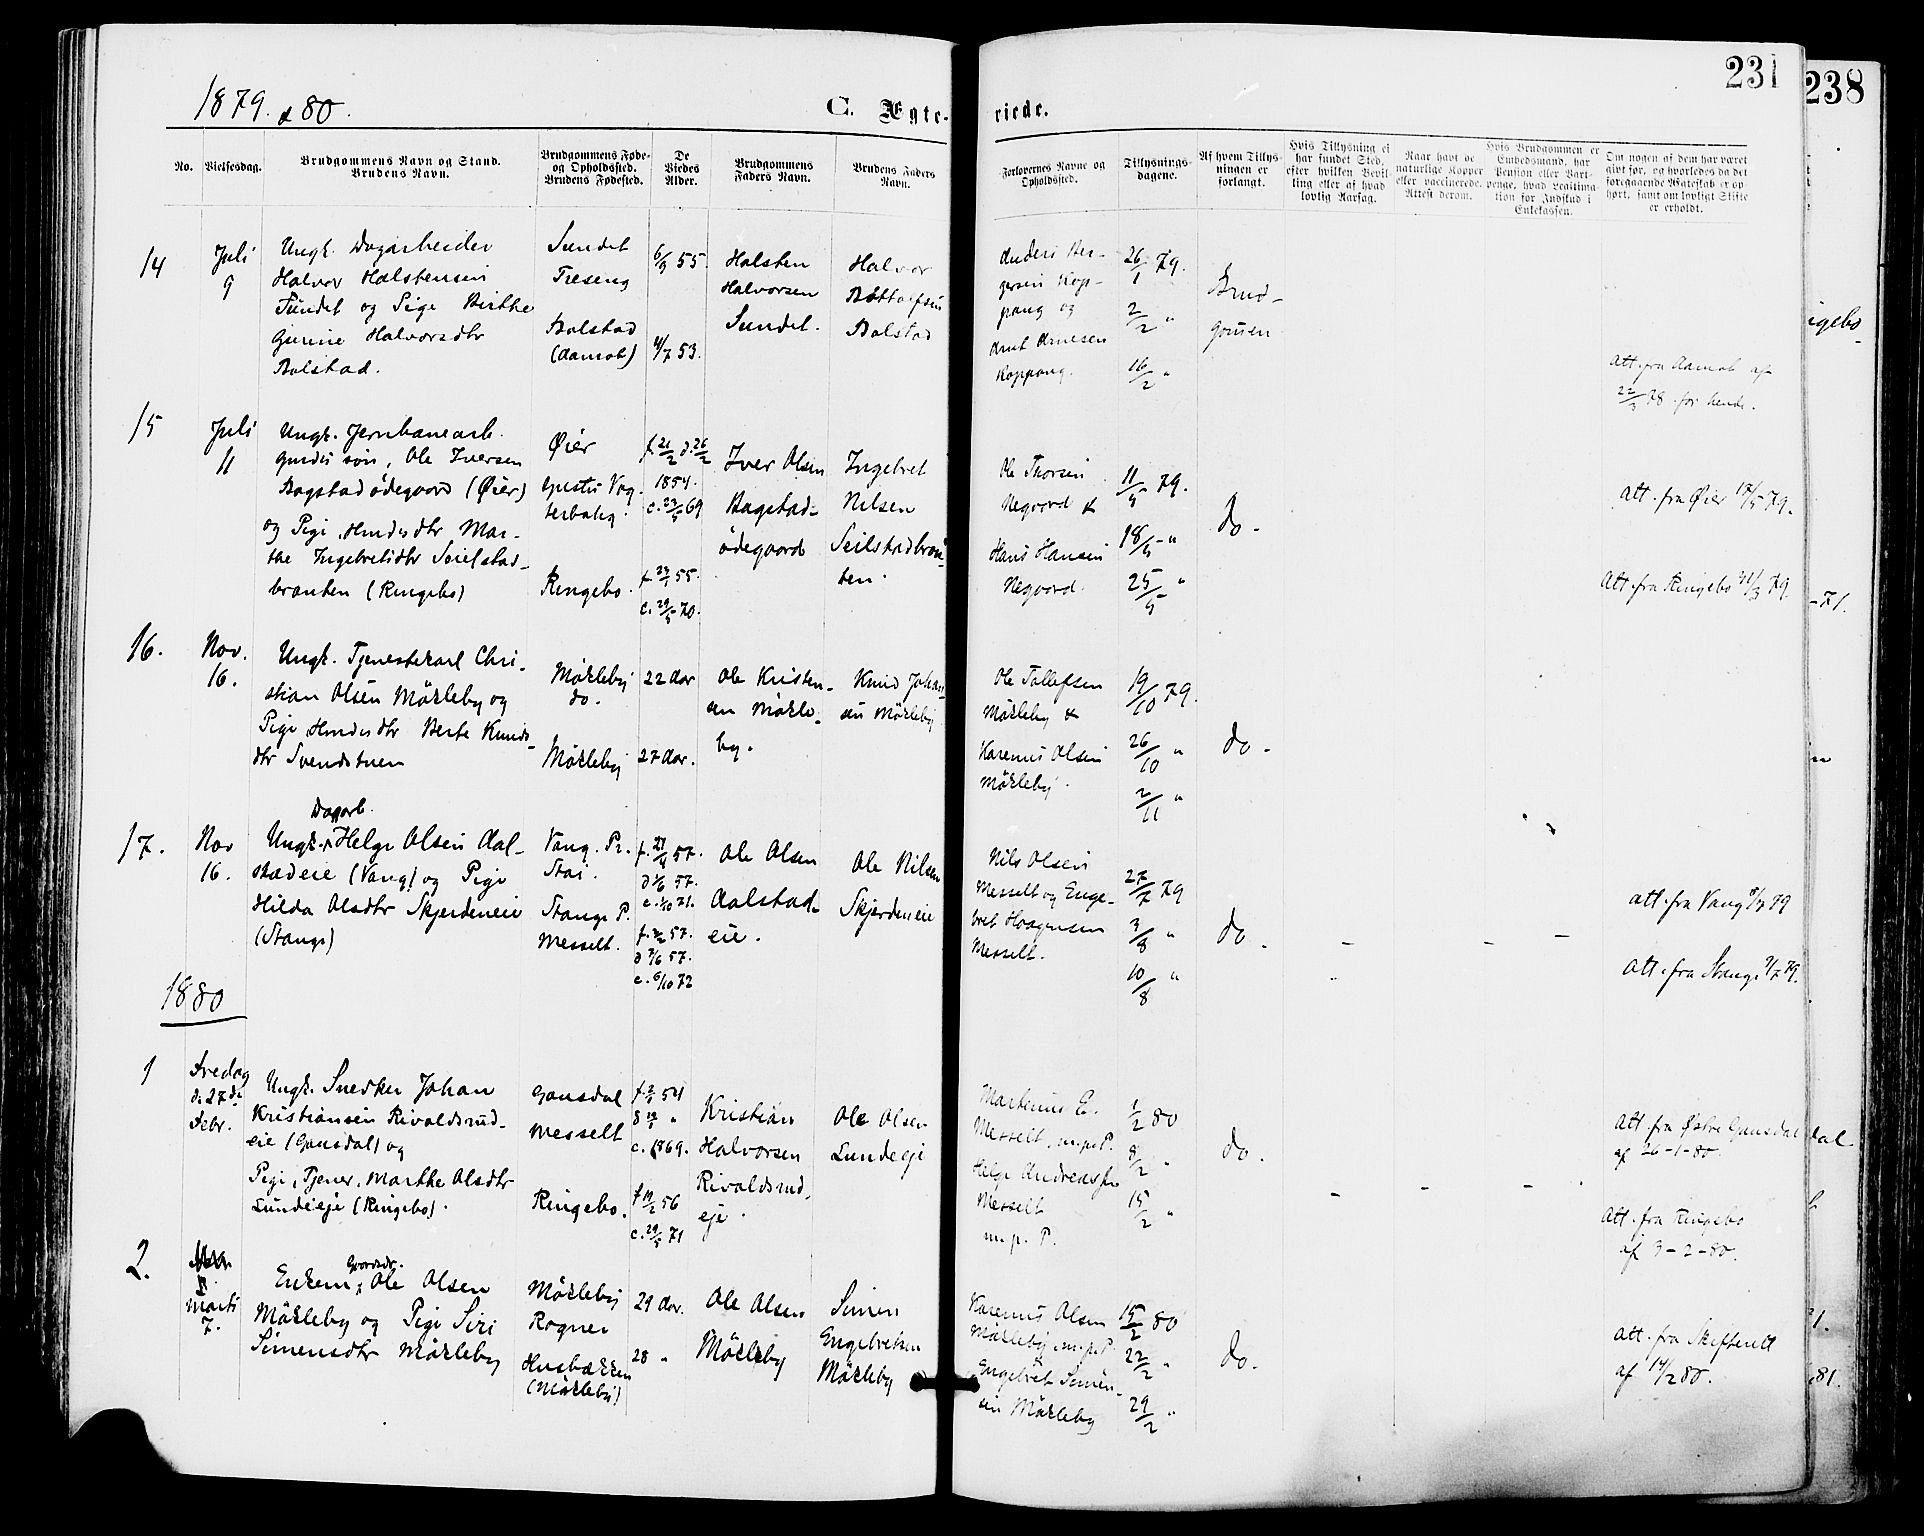 1879. & 80.
C. Ægte-
viede.
231
238
No.
Vielsesdag.
Brudgommens Navn og Stand.
Brudens Navn.
Brudgommens Føde-
og Opholdssted.
Brudens Fødested.
De
Viedes
Alder.
Brudgommens
Faders Navn.
Brudens Faders
Navn.
Forlovernes Navne og
Opholdssted.
Tillysnings-
dagene.
Af hvem Tillys-
ningen er
forlangt.
Hvis Tillysning ei
har fundet Sted,
efter hvilken Bevil-
ling eller af hvad
lovlig Aarsag.
Naar havt de
naturlige Kopper
eller vaccinerede.
Attest derom.
Hvis Brudgommen er
Embedsmand, har
Pension eller Vart-
penge, hvad Legitima-
tion for Indskud i
Enkekassen.
Om nogen af dem har været
gift før, og hvorledes da det
foregaaende Ægteskab er op-
hørt, samt om lovligt Skifte
er erholdt.
14
Juli
9
Ungk. Dagarbeider
Halvor Halstensen
Sundet og Pige Birthe
Gurine Halvorsdtr
Bolstad.
Sundet
Treseng
Bolstad
(Aamot)
6/9 55
4/7 53.
Halsten
Halvorsen
Sundet.
Halvor
Bottolfsen
Bolstad
Anders Ber-
gersen Kop-
pang og
Arnt Arnesen
Koppang.
26/1 79.
2/2 "
16/2 "
Brud-
gomen
Att. fra Aamot af
22/3 78 for hende.
15
Juli
11
Ungk. Jernbanearb.
Gmds søn, Ole Iversen
Bagstadødegaard (Øier)
og Pige, Hmdsdtr Mar-
the Ingebretsdtr Seielstad-
braaten (Ringebo)
Øier
Ringebo.
f. 21/2 d. 26/2
1854.
c. 23/5 69
f. 27/1 55.
c. 29/5 70.
Iver Olsen
Bagstad-
ødegaard
Ingebret
Nilsen
Seilstadbraa-
ten.
Ole Thorsen
Negaard &
Hans Hansen
Negaard.
11/5 79.
18/5 "
25/5 "
do.
Att. fra Øier 17/5 79.
Att. fra Ringebo 31/3 79.
16.
Nov.
16.
Ungk. Tjenestekarl Chri-
stian Olsen Møkleby og
Pige Hmdsdtr Berte Knuds-
dtr Svendstuen
Møkleby
do.
Møkleby
22 Aar
27 Aar.
Ole Kristen-
sen Møkle-
by.
Knud Johan-
sen Møkleby
Ole Tollefsen
Møkleby &
Karenus Olsen
Møkleby.
19/10 79.
26/10 "
2/11 "
do.
Dagarb.
17.
Nov
16.
Ungk. Helge Olsen Aal-
stadeie (Vang) og Pige
Hilda Olsdtr Skjerdeneie
(Stange)
Vang. Pr.
Stai.
Stange P.
Messelt.
f. 21/4 57.
d 1/6 57.
c. 1/10 71.
f. 3/2 57.
d 7/6 57.
c. 6/10 72
Ole Olsen
Aalstad-
eie.
Ole Nilsen
Skjerdeneie
Nils Olsen
Messelt og Enge-
bret Haagensen
Messelt.
27/7 79
3/8 "
10/8 "
do.
Att. fra Vang 8/7 79
Att. fra Stange 9/7 79.
1880
1
Fredag
d. 27de
Febr.
Ungk. Snedker Johan
Kristiansen Rivaldsrud-
eie (Gausdal) og
Pige, Tjener, Marthe Olsdtr
Lundeieje (Ringebo).
Gausdal
Messelt
Ringebo.
c. 1869.
f 19/2 56
c. 29/5 71
Kristian
Halvorsen
Rivaldsrud-
eje.
Ole Olsen
Lundeeje
Martenus E.
Messelt, m.p.P.
Helge Andreassen
Messelt
m.p. P.
1/2 80
8/2 "
15/2 "
do.
Att. fra Østre Gausdal
af 26-1-80.
Att. fra Ringebo
af 3-2-80.
2.
Marts
7.
Gaardbr.
Enkem. Ole Olsen
Møkleby og Pige Siri
Simensdtr Møkleby
Møkleby
Rogner
Husbakken
(Møkleby)
29 Aar.
28 "
Ole Olsen
Møkleby
Simen
Engebretsen
Møkleby
Karenus Olsen
Møkleby, m.p.P.
Engebret Simen-
sen Møkleby
15/2 80
22/2 "
29/2 "
do.
Att. fra Skifterett
af 14/2 80.